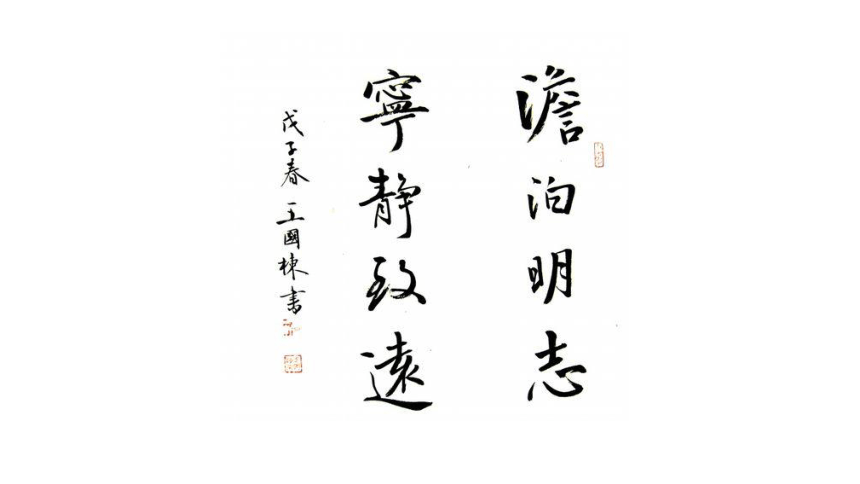 澹泊明志
寧静致遠
戊子春 王國棟書